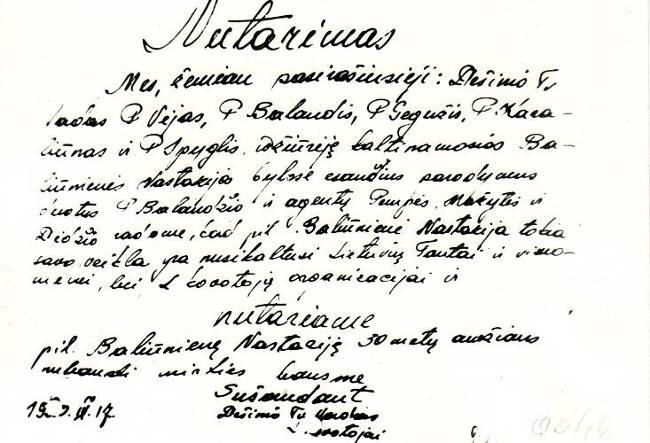 Nutarimas
Mes, žemiau pasirašiusieji: Dešimo Tv
vadas P Vėjas, P Balandis, P Gegužis, P. Kara-
liūnas ir P Spyglis, įžiūrėję kaltinamosios Ba-
liūnienės Nastazija byloje esančius parodymus
duotus P Balandžio ir agentų Pempės, Mažytis ir
Didžio radome, kad pil. Baliūnienė Nastazija tokia
savo veikla yra nusikaltusi Lietuvių Tautai ir visuo-
menei, bei L kovotojų organizacijai ir
nutariame
pil. Baliūnienę Nastaziją 30 metų amžiaus
nubausti mirties bausme
Dešimo Tv Vadas
L. kovotojai